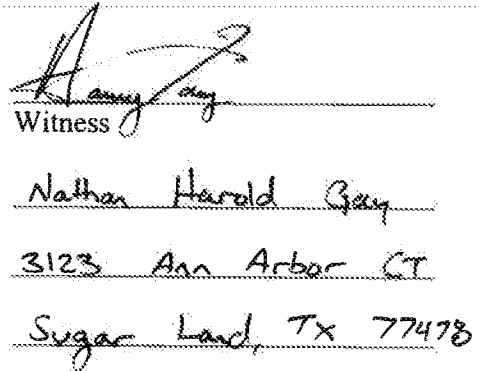 Witness
Nathan Harold Gay
3123 Ann Arbor CT
Sugar Land, TX 77478